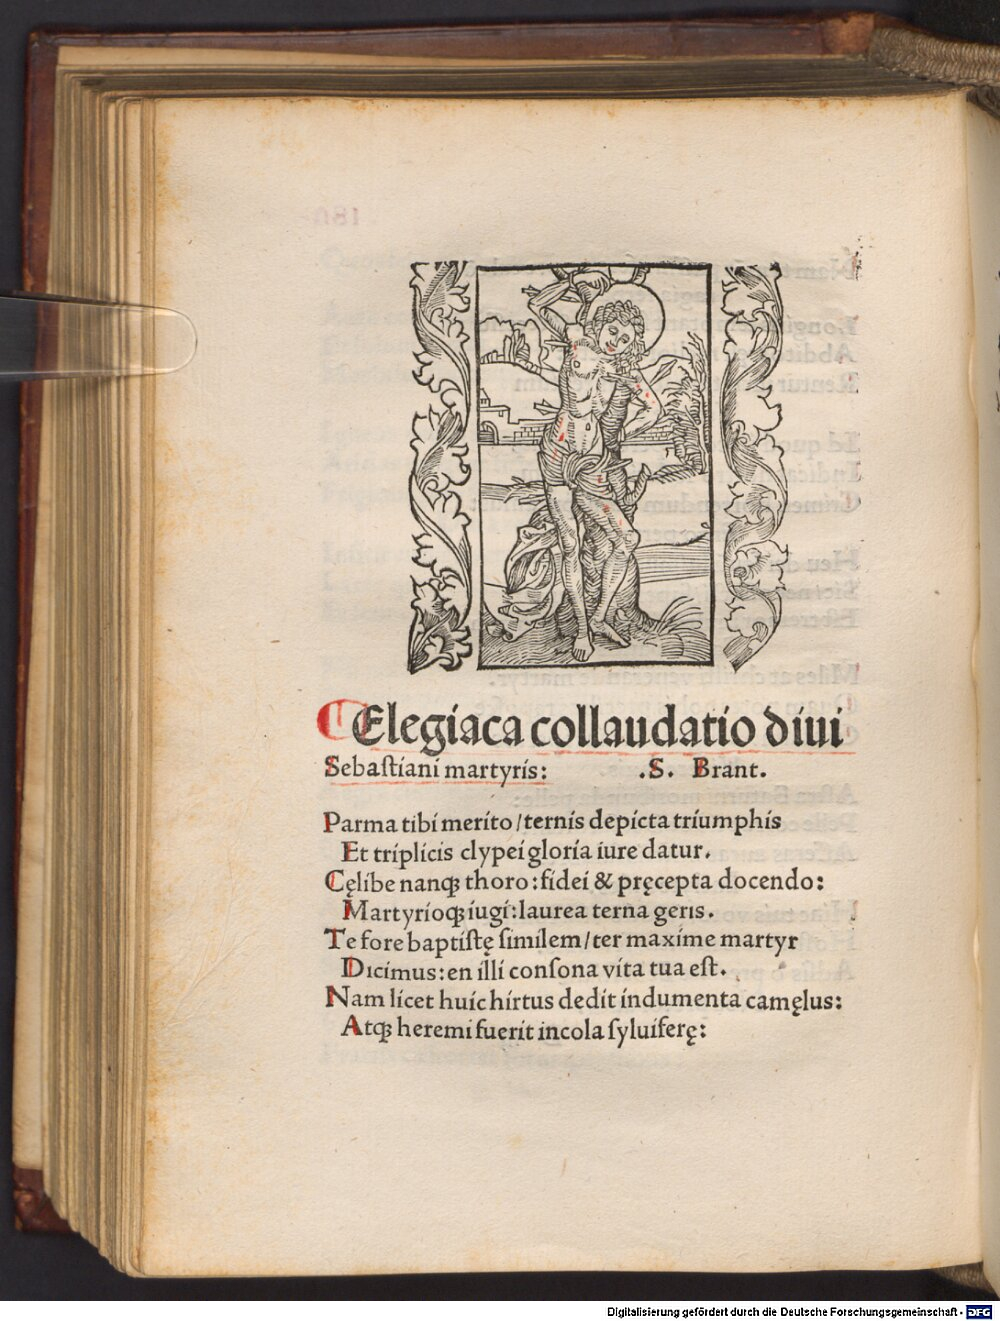 Elegiaca collaudatio diui
Sebaſtiani martyris: .S. Brant.
Parma tibi merito/ternis depicta triumphis
Et triplicis clypei gloria iure datur.
Cęlibe nanqꝫ thoro:fidei & pręcepta docendo:
Martyrioqꝫ iugi:laurea terna geris.
Te fore baptiſtę ſimilem/ter maxime martyr
Dicimus:en illi conſona vita tua eſt.
Nam licet huic hirtus dedit indumenta camęlus:
Atqꝫ heremi fuerit incola ſyluiferę:
Digitalisierung gefördert durch die Deutsche Forschungsgemeinschaft - DFG